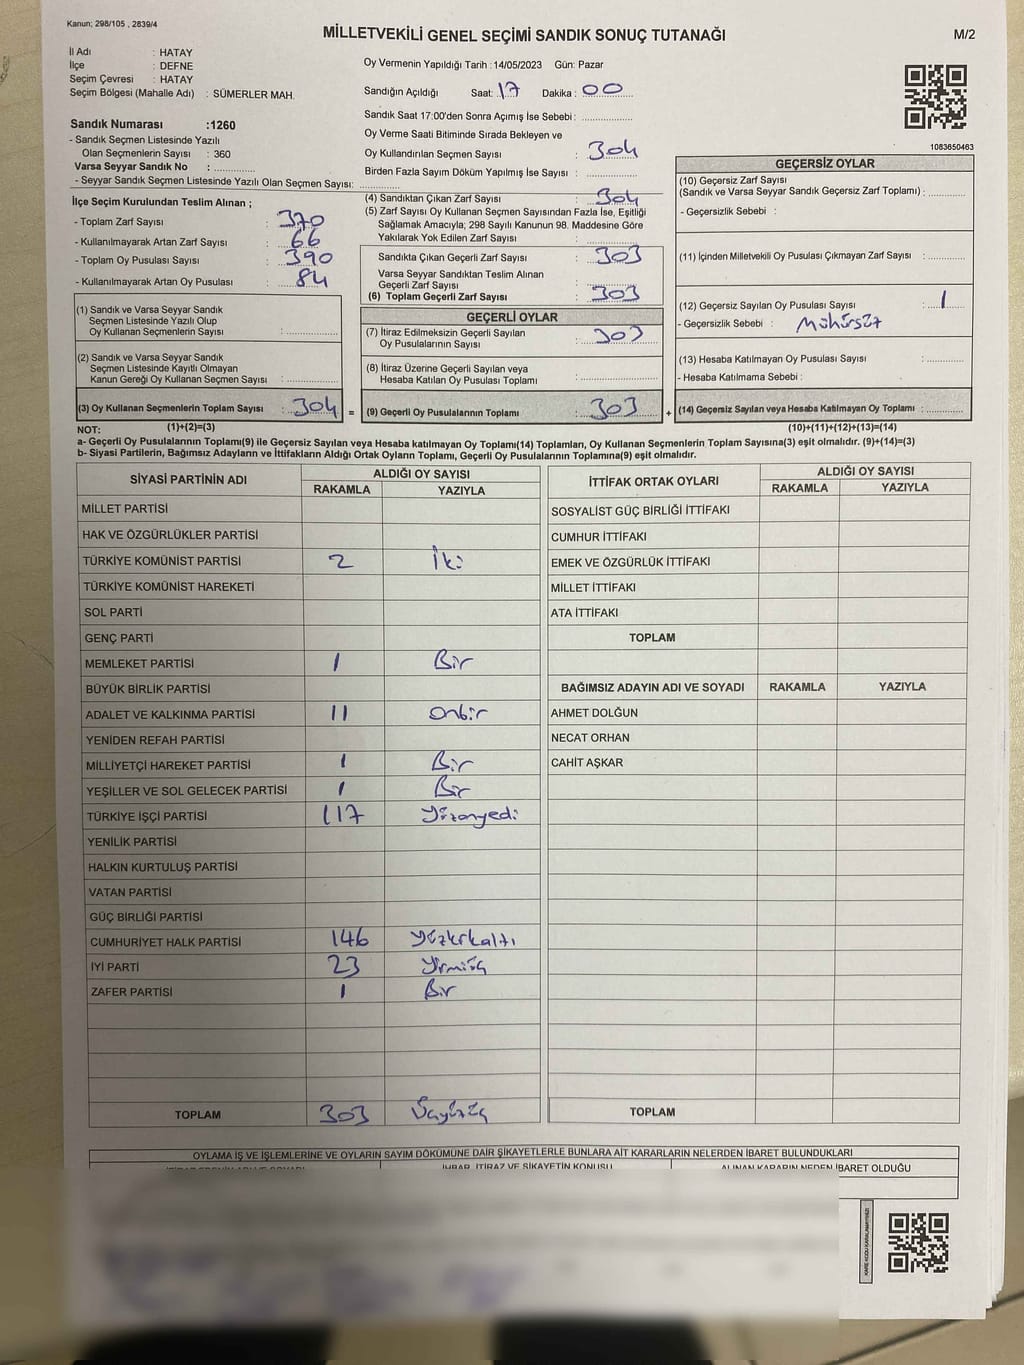 Kanun; 298/105 , 2839/4
MİLLETVEKİLİ GENEL SEÇİMİ SANDIK SONUÇ TUTANAĞI
M/2
İl Adı : HATAY
İlçe : DEFNE
Seçim Çevresi : HATAY
Seçim Bölgesi (Mahalle Adı) : SÜMERLER MAH.
Oy Vermenin Yapıldığı Tarih :14/05/2023 Gün: Pazar
Sandığın Açıldığı Saat: 17 Dakika : 00
Sandık Saat 17:00'den Sonra Açımış İse Sebebi :
Oy Verme Saati Bitiminde Sırada Bekleyen ve
Oy Kullandırılan Seçmen Sayısı : 304
Birden Fazla Sayım Döküm Yapılmış İse Sayısı :
1083650463
Sandık Numarası :1260
- Sandık Seçmen Listesinde Yazılı
Olan Seçmenlerin Sayısı : 360
Varsa Seyyar Sandık No :
- Seyyar Sandık Seçmen Listesinde Yazılı Olan Seçmen Sayısı:
İlçe Seçim Kurulundan Teslim Alınan ;
- Toplam Zarf Sayısı : 370
- Kullanılmayarak Artan Zarf Sayısı : 66
- Toplam Oy Pusulası Sayısı : 390
- Kullanılmayarak Artan Oy Pusulası : 84
(1) Sandık ve Varsa Seyyar Sandık
Seçmen Listesinde Yazılı Olup
Oy Kullanan Seçmenlerin Sayısı :
(2) Sandık ve Varsa Seyyar Sandık
Seçmen Listesinde Kayıtlı Olmayan
Kanun Gereği Oy Kullanan Seçmen Sayısı :
(3) Oy Kullanan Seçmenlerin Toplam Sayısı : 304 =
(1)+(2)=(3)
(4) Sandıktan Çıkan Zarf Sayısı : 304
(5) Zarf Sayısı Oy Kullanan Seçmen Sayısından Fazla İse, Eşitliği
Sağlamak Amacıyla; 298 Sayılı Kanunun 98. Maddesine Göre
Yakılarak Yok Edilen Zarf Sayısı :
Sandıkta Çıkan Geçerli Zarf Sayısı : 303
Varsa Seyyar Sandıktan Teslim Alınan
Geçerli Zarf Sayısı :
(6) Toplam Geçerli Zarf Sayısı : 303
GEÇERLİ OYLAR
(7) İtiraz Edilmeksizin Geçerli Sayılan
Oy Pusulalarının Sayısı : 303
(8) İtiraz Üzerine Geçerli Sayılan veya
Hesaba Katılan Oy Pusulası Toplamı :
(9) Geçerli Oy Pusulalarının Toplamı : 303 +
GEÇERSİZ OYLAR
(10) Geçersiz Zarf Sayısı
(Sandık ve Varsa Seyyar Sandık Geçersiz Zarf Toplamı) :
- Geçersizlik Sebebi :
(11) İçinden Milletvekili Oy Pusulası Çıkmayan Zarf Sayısı :
(12) Geçersiz Sayılan Oy Pusulası Sayısı : 1
- Geçersizlik Sebebi : Mühürsüz
(13) Hesaba Katılmayan Oy Pusulası Sayısı :
- Hesaba Katılmama Sebebi :
(14) Geçersiz Sayılan veya Hesaba Katılmayan Oy Toplamı :
(10)+(11)+(12)+(13)=(14)
NOT:
a- Geçerli Oy Pusulalarının Toplamı(9) ile Geçersiz Sayılan veya Hesaba katılmayan Oy Toplamı(14) Toplamları, Oy Kullanan Seçmenlerin Toplam Sayısına(3) eşit olmalıdır. (9)+(14)=(3)
b- Siyasi Partilerin, Bağımsız Adayların ve İttifakların Aldığı Ortak Oyların Toplamı, Geçerli Oy Pusulalarının Toplamına(9) eşit olmalıdır.
SİYASİ PARTİNİN ADI ALDIĞI OY SAYISI
RAKAMLA YAZIYLA
MİLLET PARTİSİ
HAK VE ÖZGÜRLÜKLER PARTİSİ
TÜRKİYE KOMÜNİST PARTİSİ 2 İki
TÜRKİYE KOMÜNİST HAREKETİ
SOL PARTİ
GENÇ PARTİ
MEMLEKET PARTİSİ 1 Bir
BÜYÜK BİRLİK PARTİSİ
ADALET VE KALKINMA PARTİSİ 11 onbir
YENİDEN REFAH PARTİSİ
MİLLİYETÇİ HAREKET PARTİSİ 1 Bir
YEŞİLLER VE SOL GELECEK PARTİSİ 1 Bir
TÜRKİYE İŞÇİ PARTİSİ 117 Yüzonyedi
YENİLİK PARTİSİ
HALKIN KURTULUŞ PARTİSİ
VATAN PARTİSİ
GÜÇ BİRLİĞİ PARTİSİ
CUMHURİYET HALK PARTİSİ 146 Yüzkırkaltı
İYİ PARTİ 23 Yirmiüç
ZAFER PARTİSİ 1 Bir
TOPLAM 303 Üçyüzüç
İTTİFAK ORTAK OYLARI ALDIĞI OY SAYISI
RAKAMLA YAZIYLA
SOSYALİST GÜÇ BİRLİĞİ İTTİFAKI
CUMHUR İTTİFAKI
EMEK VE ÖZGÜRLÜK İTTİFAKI
MİLLET İTTİFAKI
ATA İTTİFAKI
TOPLAM
BAĞIMSIZ ADAYIN ADI VE SOYADI RAKAMLA YAZIYLA
AHMET DOLĞUN
NECAT ORHAN
CAHİT AŞKAR
TOPLAM
OYLAMA İŞ VE İŞLEMLERİNE VE OYLARIN SAYIM DÖKÜMÜNE DAİR ŞİKAYETLERLE BUNLARA AİT KARARLARIN NELERDEN İBARET BULUNDUKLARI
İHBAR, İTİRAZ VE ŞİKAYETİN KONUSU ALINAN KARARIN NEDEN İBARET OLDUĞU